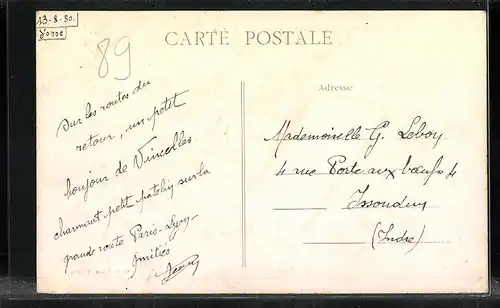 13-8-30.
Yonne
89
CARTE POSTALE
Sur les routes du
retour, un petit
bonjour de Vincelles
charmant petit patelin sur la
grande route Paris-Lyon-
Amitiés
Adresse
Mademoiselle G. Leboy
4 rue Porte aux bœufs 4
Issoudun
(Indre)